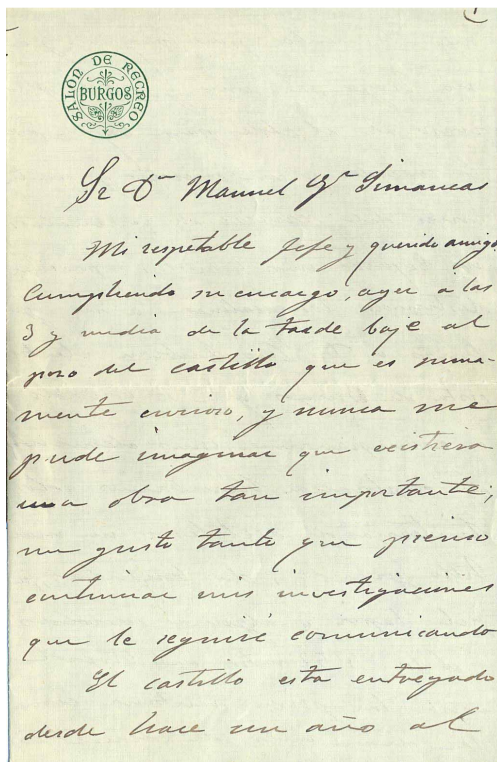 SALÓN DE RECREO
BURGOS
Sr Dn Manuel Gn Simancas
Mi respetable Jefe y querido amigo
Cumpliendo su encargo, ayer a las
3 y media de la tarde baje al
pozo del castillo que es suma-
mente curioso, y nunca me
pude imaginar que existiera
una obra tan importante;
me gusto tanto que pienso
continuar mis investigaciones
que le seguiré comunicando
El castillo esta entregado
desde hace un año al